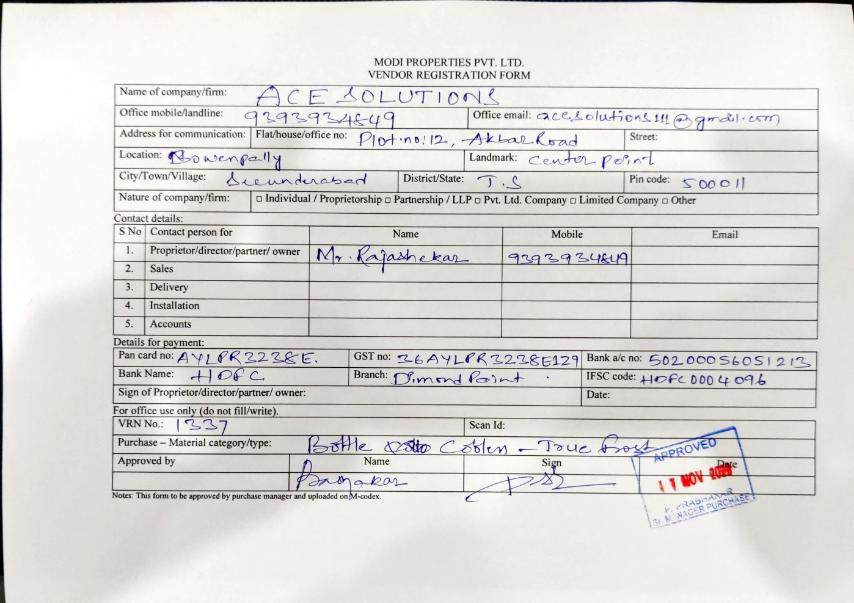 MODI PROPERTIES PVT. LTD.
VENDOR REGISTRATION FORM
Name of company/firm: ACE SOLUTIONS
Office mobile/landline: 9393934849 Office email: acesolutions111@gmail.com
Address for communication: Flat/house/office no: Plot.no:12, Akbar Road Street:
Location: Bowenpally Landmark: Center point
City/Town/Village: Secunderabad District/State: T.S Pin code: 500011
Nature of company/firm: □ Individual / Proprietorship □ Partnership / LLP □ Pvt. Ltd. Company □ Limited Company □ Other
Contact details:
S No Contact person for Name Mobile Email
1. Proprietor/director/partner/ owner Mr. Rajashekar 9393934849
2. Sales
3. Delivery
4. Installation
5. Accounts
Details for payment:
Pan card no: AYLPR3238E. GST no: 36AYLPR3238E1Z9 Bank a/c no: 50200056051213
Bank Name: HDFC Branch: Dimond Point . IFSC code: HDFC0004096
Sign of Proprietor/director/partner/ owner: Date:
For office use only (do not fill/write).
VRN No.: 1337 Scan Id:
Purchase – Material category/type: Bottle – True
Approved by Name Sign Date
APPROVED
17 NOV
P. PRABHAKAR
Sr. MANAGER PURCHASE
Notes: This form to be approved by purchase manager and uploaded on M-codex.